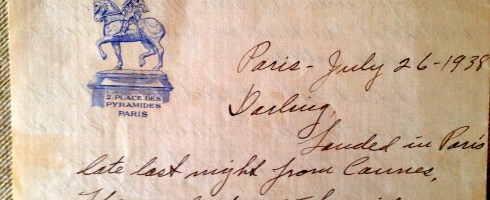 2, PLACE DES
PYRAMIDES
PARIS
Paris - July 26 - 1938
Darling,
Landed in Paris
late last night from Cannes,